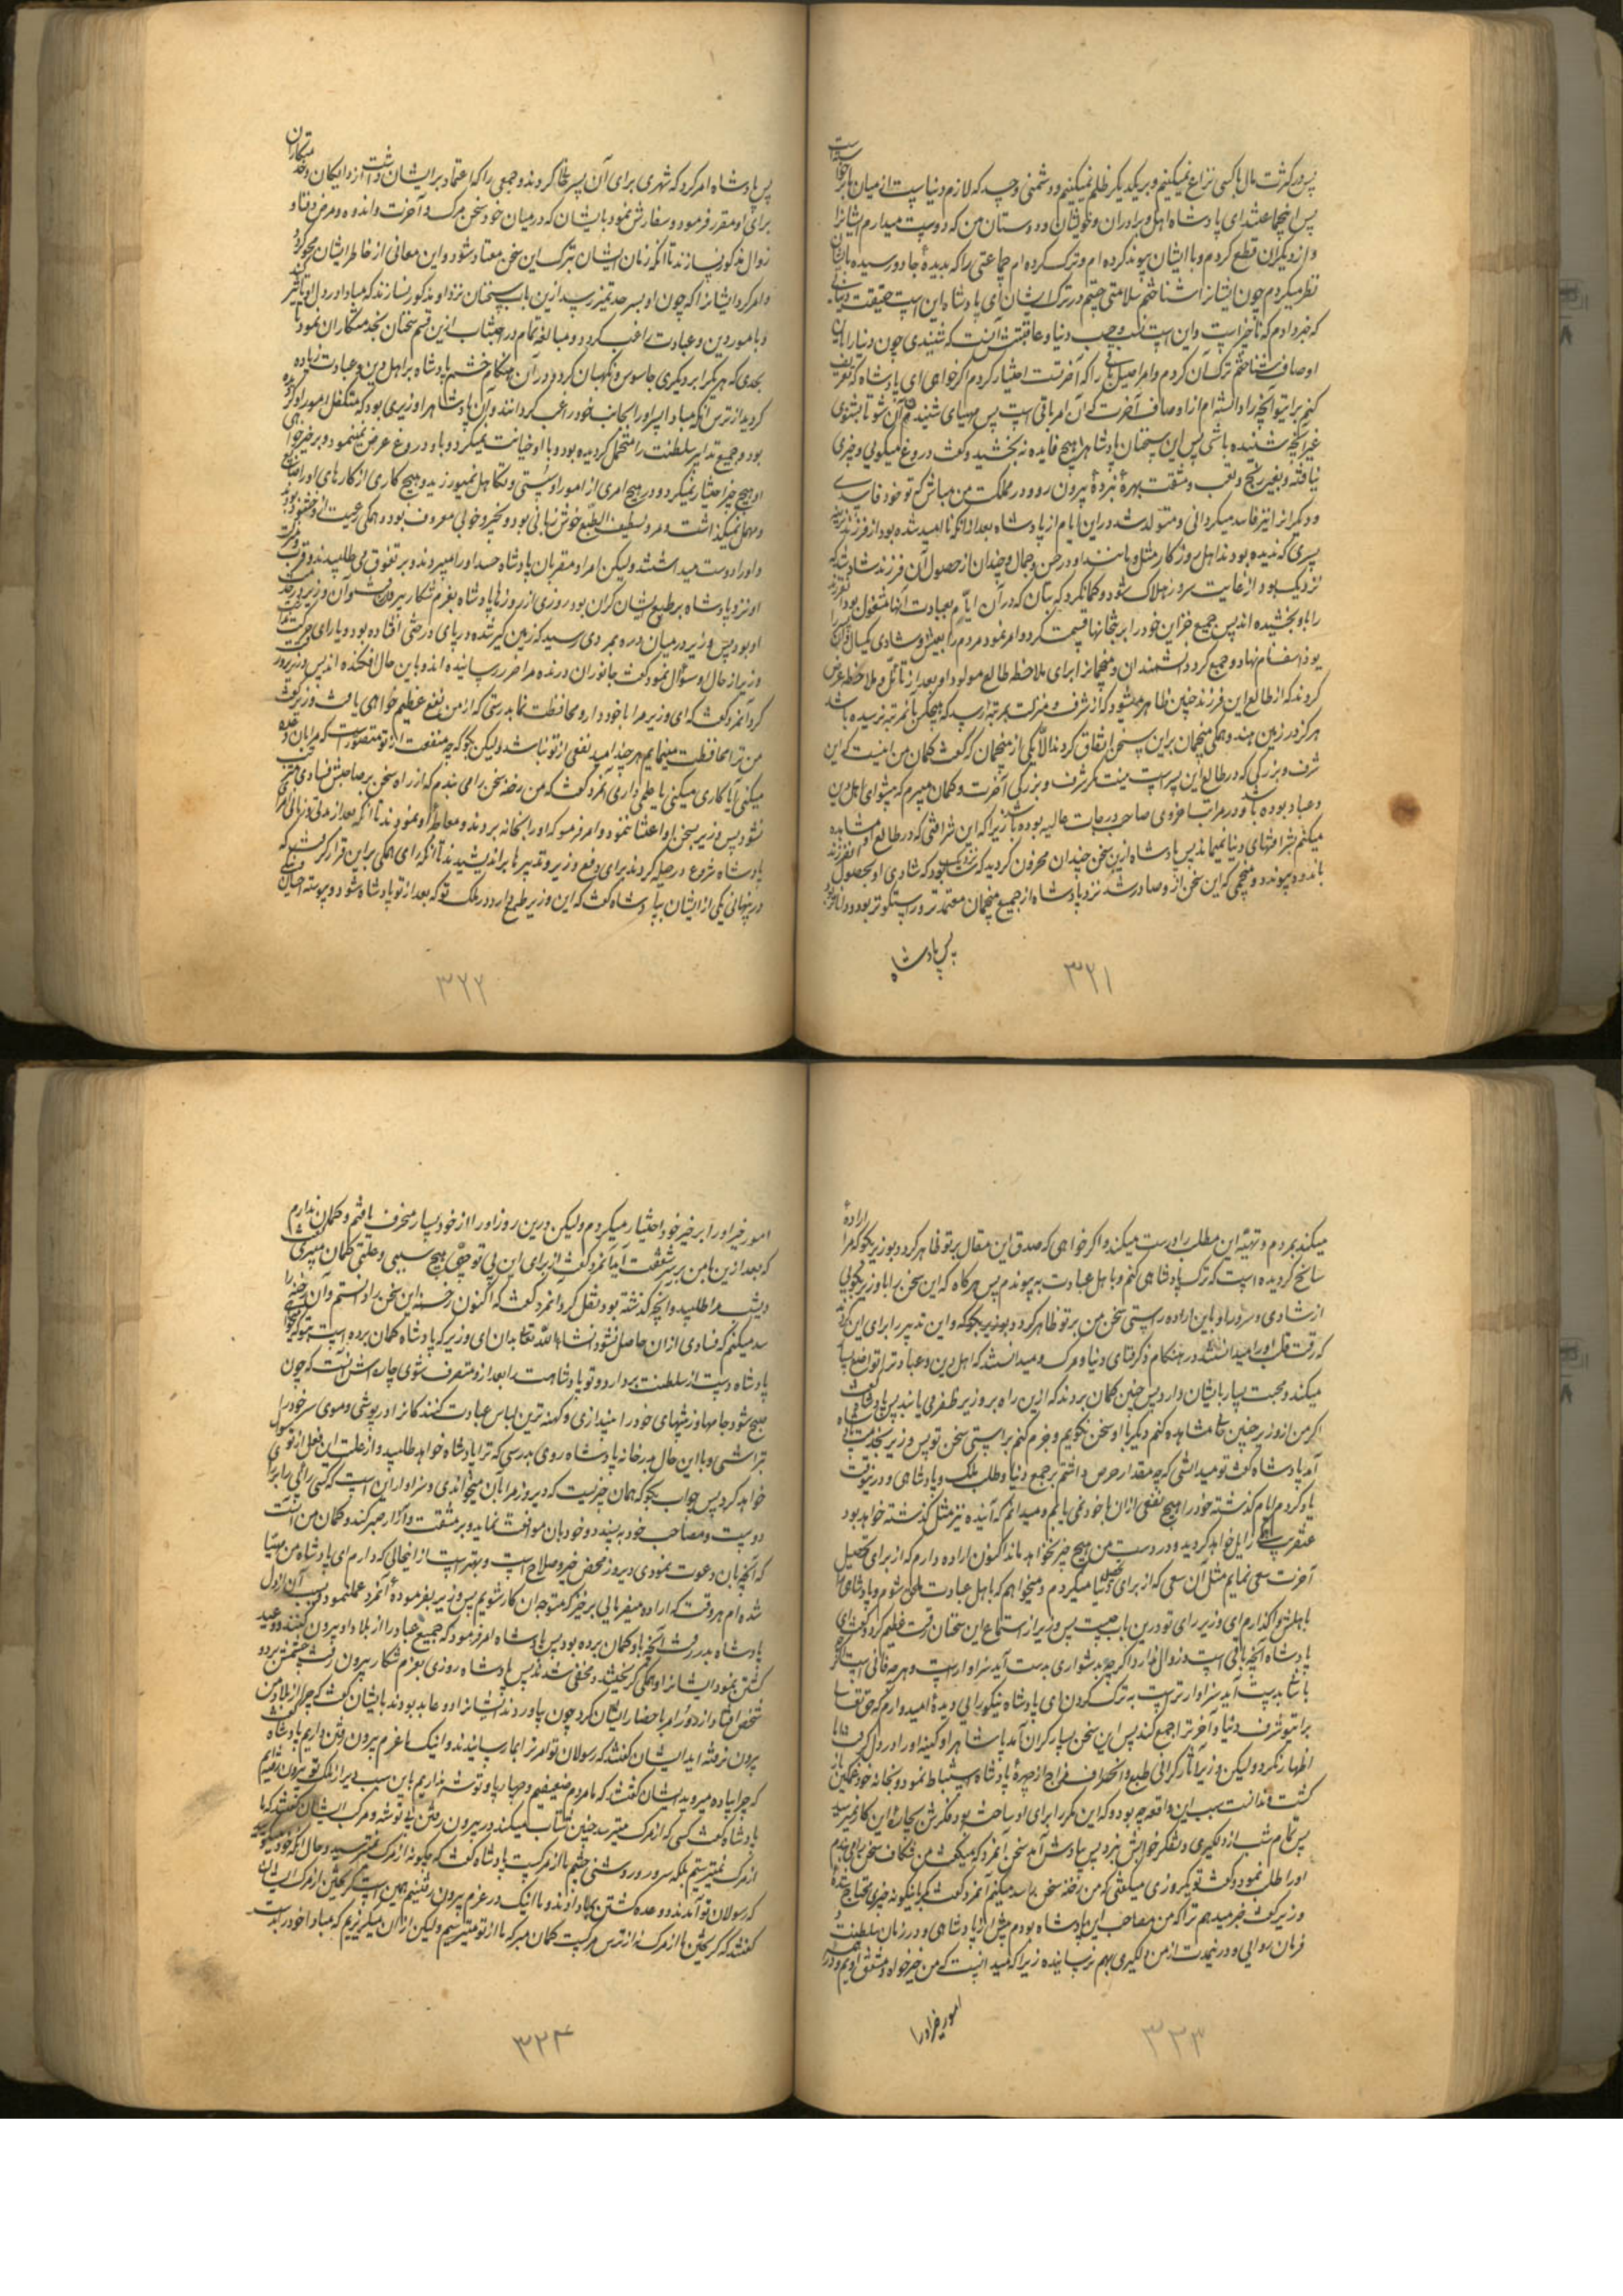 پس در کثرت مال با کسی نزاع نمیکنیم و بر یکدیگر ظلم نمیکنیم و دشمنی و حسد که لازم دنیاست از میان ما برخواسته است
پس اینجماعتند ای پادشاه اهل و برادران و خویشان و دوستان من که دوست میدارم ایشانرا
و از دیگران قطع کردم و با ایشان پیوند کرده‌ام و ترک کرده‌ام جماعتی را که بدیدهٔ جادو رسیده بایشان
نظر میکردم چون ایشانرا شناختم سلامتی جستم در ترک ایشان ای پادشاه این است حقیقت دنیائی
که خبر دادم که ناچیز است و این است نسب و حسب دنیا و عاقبتش آنست که شنیدی چون دنیا را باین
اوصاف شناختم ترک آن کردم و امر اصیل باقی را که آخرتست اختیار کردم اگر خواهی ای پادشاه که تعریف
کنم برایتو آنچه را دانسته‌ام از اوصاف آخرت که آن امر باقی است پس مهیای شنیدن آن شو تا بشنوی
غیر آنچه شنیده باشی پس این سخنان پادشاه را هیچ فایده نه بخشید و گفت دروغ میگوئی و چیزی
نیافته و بغیر رنج و تعب و مشقت بهرهٔ نبردهٔ بیرون رو و در مملکت من مباش که تو خود فاسدی
و دیگرانرا نیز فاسد میگردانی و متولد شد در این ایام از پادشاه بعد از آنکه ناامید شده بود از فرزند نرینه
پسری که ندیده بودند اهل روزگار مثل و مانند او در حسن و جمال و چندان از حصول آن فرزند شاد شد که
نزدیک بود از غایت سرور هلاک شود و گمان کرد که بتان که در آن ایام بعبادت آنها مشغول بود آن فرزند
را باو بخشیده‌اند پس جمیع خزاین خود را بر بتخانها قسمت کرد و امر نمود مردم را بعیش و شادی یکسال و آن پسر را
یوذاسف نام نهاد و جمع کرد دانشمندان و منجمانرا برای ملاحظه طالع مولود او و بعد از تأمل و ملاحظه عرض
کردند که از طالع این فرزند چنین ظاهر میشود که از شرف و منزلت بمرتبه رسد که هیچکس بآنمرتبه نرسیده باشد
هرگز در زمین هند و همگی منجمان بر این سخن اتفاق کردند الا یکی از منجمان که گفت گمان من اینست که این
شرف و بزرگی که در طالع این پسر است نیست مگر شرف و بزرگی آخرت و گمان میبرم که پیشوای اهل دین
و عباد بوده باشد و در مراتب اخروی صاحب درجات عالیه بوده باشد زیرا که این شرافتی که در طالع او مشاهده
میکنم بشرافتهای دنیا نمیماند پس پادشاه ازین سخن چندان محزون گردید که نزدیک بود که شادی او بحصول آنفرزند
باندوه پیوندد و منجمی که این سخن از او صادر شد نزد پادشاه از جمیع منجمان معتمدتر و راستگوتر بود و داناتر
پس پادشاه
۳۲۱
پس پادشاه امر کرد که شهری برای آن پسر خالی کردند و جمعی را که اعتماد بر ایشان داشت از دایگان و خدمتکاران
برای او مقرر فرمود و سفارش نمود بایشان که در میان خود سخن مرگ و آخرت و اندوه و مرض و فنا و
زوال مذکور نسازند تا آنکه زبان ایشان بترک این سخن معتاد شود و این معانی از خاطر ایشان محو گردد
و امر کرد ایشانرا که چون او بسر حد تمیز رسد ازین باب سخنان نزد او مذکور نسازند که مبادا در دل او تاثیر کند
و بامور دین و عبادت راغب گردد و مبالغهٔ تمام در اجتناب ازین قسم سخنان بخدمتکاران نمود تا
بحدی که هر یک را بر دیگری جاسوس و نگهبان کرد و در آن هنگام خشم پادشاه بر اهل دین و عبادت زیاده
گردید از ترس آنکه مبادا پسر او را بجانب خود راغب گردانند و آن پادشاه را وزیری بود که متکفل امور او گردیده
بود و جمیع تدابیر سلطنت را متحمل گردیده بود و با او خیانت نمیکرد و باو دروغ عرض نمینمود و بر خیرخواهی
او هیچ چیز اختیار نمیکرد و در هیچ امری از امور او سستی و تکاهل نمیورزید و هیچ کاری از کارهای او را ضایع
و مهمل نمیگذاشت و مرد لطیف الطبع خوش زبانی بود و بخیر و خوبی معروف بود و همگی رعیت ازو خشنود بودند
و او را دوست میداشتند ولیکن امرا و مقربان پادشاه حسد او را میبردند و بر تفوق می طلبیدند و قرب
او نزد پادشاه بر طبع ایشان گران بود روزی از روزها پادشاه بعزم شکار بیرون رفت و آن وزیر در خدمت
او بود پس وزیر در میان دره بمردی رسید که زمین‌گیر شده در پای درختی افتاده بود و یارای حرکت نداشت
وزیر از حال او سؤال نمود گفت جانوران درنده مرا ضرر رسانیده‌اند و باین حال افکنده‌اند پس وزیر برو رقت
کرد آنمرد گفت که ای وزیر مرا با خود دار و محافظت نما بدرستی که از من نفع عظیم خواهی یافت وزیر گفت
من ترا محافظت مینمایم هر چند امید نفعی از تو نباشد ولیکن بگو که چه منفعت از تو متصور است که مرا بآن وعده
میکنی آیا کاری میکنی یا علمی داری آنمرد گفت که من رخنه سخن را می بندم که از راه سخن بر صاحبش فسادی مترتب
نشود پس وزیر بسخن او اعتنا ننمود و امر فرمود که او را بخانه بردند و معالجهٔ او نمودند تا آنکه بعد از مدتی و زمانی امرای
پادشاه شروع در حیله کردند برای دفع وزیر و تدبیرها براندیشیدند تا آنکه رای همگی بر این قرار گرفت که
در پنهانی یکی از ایشان بپادشاه گفت که این وزیر طمع دارد در ملک تو که بعد از تو پادشاه شود و پیوسته احسان
۳۲۲
میکند بمردم و تهیهٔ این مطلب را درست میکند و اگر خواهی که صدق این مقال بر تو ظاهر گردد بوزیر بگو که مرا ارادهٔ
سانح گردیده است که ترک پادشاهی کنم و باهل عبادت به پیوندم پس هرگاه که این سخن را با وزیر بگوئی
از شادی و سرور او باین اراده راستی سخن من بر تو ظاهر گردد و این تدبیر را برای این کردند
که رقت قلب او را میدانستند در هنگام ذکر فنای دنیا و مرگ و میدانستند که اهل دین و عباد را تواضع بسیار
میکند و محبت بسیار بایشان دارد پس چنین گمان بردند که ازین راه بر وزیر ظفر می یابند پس پادشاه گفت
اگر من از وزیر چنین حالی مشاهده کنم دیگر با او سخن نگویم و جزم کنم براستی سخن تو پس وزیر بخدمت پادشاه
آمد پادشاه گفت تو میدانستی که چه مقدار حرص داشتم بر جمع دنیا و طلب ملک و پادشاهی و درینوقت
یاد کردم ایام گذشته خود را هیچ نفعی از آن با خود نمی یابم و میدانم که آینده نیز مثل گذشته خواهد بود
عنقریب همگی زایل خواهد گردید و در دست من هیچ چیز نخواهد ماند اکنون اراده دارم که از برای تحصیل
آخرت سعی نمایم مثل آن سعی که از برای تحصیل دنیا میکردم و میخواهم که باهل عبادت ملحق شوم و پادشاهی را
باهلش واگذارم ای وزیر رای تو درین باب چیست پس وزیر از استماع این سخنان رقت عظیم کرد و گفت ای
پادشاه آنچه باقی است و زوال ندارد اگر چه بدشواری بدست آید سزاوار است و هر چه فانی است اگر چه
باسانی بدست آید سزاوارتر است به ترک کردن ای پادشاه نیکو رائی دیدهٔ امیدوارم که حق تعالی
برایتو شرف دنیا و آخرت را جمع کند پس این سخن بسیار گران آمد پادشاه را و کینه او را در دل گرفت اما
اظهار نکرد ولیکن وزیر آثار گرانی طبع و انحراف مزاج از چهرهٔ پادشاه استنباط نمود و بخانه خود غمگین باز
گشت و ندانست سبب این واقعه چه بود و که این مکر را برای او ساخت بود و فکرش بچارهٔ این کار نمیرسید
پس تمام شب از دلگیری و تفکر خوابش نبرد پس یادش آمد سخن آنمرد که میگفت من شکاف سخن را می بندم
او را طلب نمود و گفت تو یکروزی میگفتی که من رخنه سخن را سد میکنم آنمرد گفت مگر باینگونه چیزی محتاج شدهٔ
وزیر گفت خبر میدهم ترا که من مصاحب این پادشاه بودم پیش از پادشاهی و در زمان سلطنت و
فرمان روایی و درینمدت از من دلگیری بهم نرسانیده زیرا که میدانست که من خیرخواه و مشفق اویم و در همه
امور خیر او را
۳۲۳
امور خیر او را بر خیر خود اختیار میکردم ولیکن درین روز او را از خود بسیار منحرف یافتم و گمان ندارم
که بعد ازین با من بر سر شفقت آید آنمرد گفت از برای این بی توجهی هیچ سببی و علتی گمان میبری گفت
دیشب مرا طلبید و آنچه گذشته بود نقل کرد آنمرد گفت که اکنون رخنه این سخن را دانستم و آن رخنه را
سد میکنم که فسادی از آن حاصل نشود انشاء الله تعالی بدان ای وزیر که پادشاه گمان برده است بتو که میخواهی
پادشاه دست از سلطنت بردارد و تو پادشاهت را بعد از او متصرف شوی چاره‌اش آنست که چون
صبح شود جامها و زینتهای خود را بیندازی و کهنه ترین لباس عبادت کنندگانرا در پوشی و موی سر خود را
بتراشی و با این حال بدر خانه پادشاه روی بدرستی که ترا پادشاه خواهد طلبید و از علت این فعل از تو سؤال
خواهد کرد پس جواب بگو که همان چیزیست که دیروز مرا بآن میخواندی و سزاوار این است که کسی رائی را برای
دوست و مصاحب خود به پسندد خود بآن موافقت نماید و بر مشقت و آزار صبر کند و گمان من آنست
که آنچه بآن دعوت نمودی دیروز محض خیر و صلاح است و بهتر است از اینحالی که دارم ای پادشاه من مهیا
شده‌ام هر وقت که اراده میفرمائی برخیز که متوجه آن کار شویم پس وزیر بفرمودهٔ آنمرد عمل نمود و بسبب آن از دل
پادشاه بدر رفت آنچه باو گمان برده بود پس پادشاه امر فرمود که جمیع عباد را از بلاد او بیرون کنند و وعید
کشتن نمود ایشانرا و همگی گریختند و مخفی شدند پس پادشاه روزی بعزم شکار بیرون رفت چشمش بر دو
شخص افتاد از دور امر باحضار ایشان کرد چون بیاوردند ایشانرا دو عابد بودند بایشان گفت که چرا از بلاد من
بیرون نرفته‌اید ایشان گفتند که رسولان تو امر ترا بما رسانیدند و اینک ما عزم بیرون رفتن داریم پادشاه گفت
که چرا پیاده میروید ایشان گفتند که ما مردم ضعیفیم و چهارپا و توشه نداریم باین سبب دیر از ملک تو بیرون میرویم
پادشاه گفت کسی که از مرگ میترسد چنین شتاب میکند در بیرون رفتن بی توشه و مرکب ایشان گفتند که ما
از مرگ نمیترسیم بلکه سرور و روشنی چشم ما از مرگست پادشاه گفت که چگونه از مرگ نمیترسید و حال آنکه خود میگوئید
که رسولان تو آمدند و وعده کشتن بما دادند و ما اینک در عزم بیرون رفتنیم همین است گریختن از مرگ ایشان
گفتند که گریختن ما از مرگ نه از ترس مرگست گمان مبر که ما از تو میترسیم ولیکن از آن میگریزیم که مبادا خود را بدست
۳۲۴